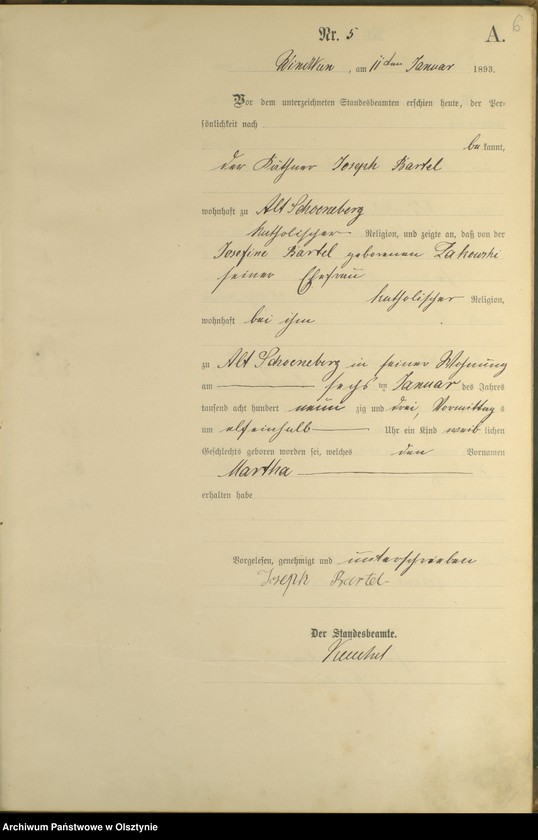 6
Nr. 5 A.
Windken, am 11 ten Januar 1893.
Vor dem unterzeichneten Standesbeamten erschien heute, der Per-
sönlichkeit nach
be kannt,
der Käthner Joseph Bartel
wohnhaft zu Alt Schoeneberg
katholischer Religion, und zeigte an, daß von der
Josefine Bartel geborenen Zakowski
seiner Ehefrau
katholischer Religion,
wohnhaft bei ihm
zu Alt Schoeneberg in seiner Wohnung
am sechs ten Januar des Jahres
tausend acht hundert neun zig und drei, Vormittag s
um elfeinhalb Uhr ein Kind weib lichen
Geschlechts geboren worden sei, welches den Vornamen
Martha
erhalten habe
Vorgelesen, genehmigt und unterschrieben
Joseph Bartel
Der Standesbeamte.
Archiwum Państwowe w Olsztynie